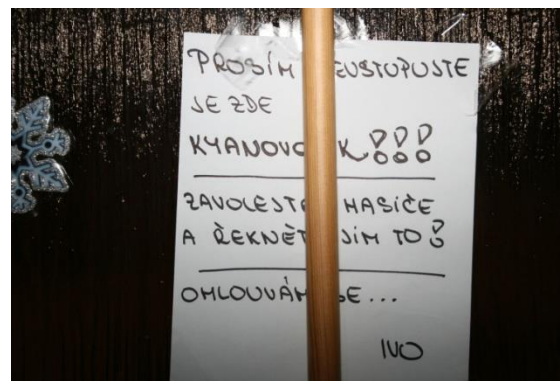 PROSÍM NEVSTUPUJTE
JE ZDE
KYANOVODÍK!!!
ZAVOLEJTE HASIČE
A ŘEKNĚTE JIM TO!
OMLOUVÁM SE...
IVO